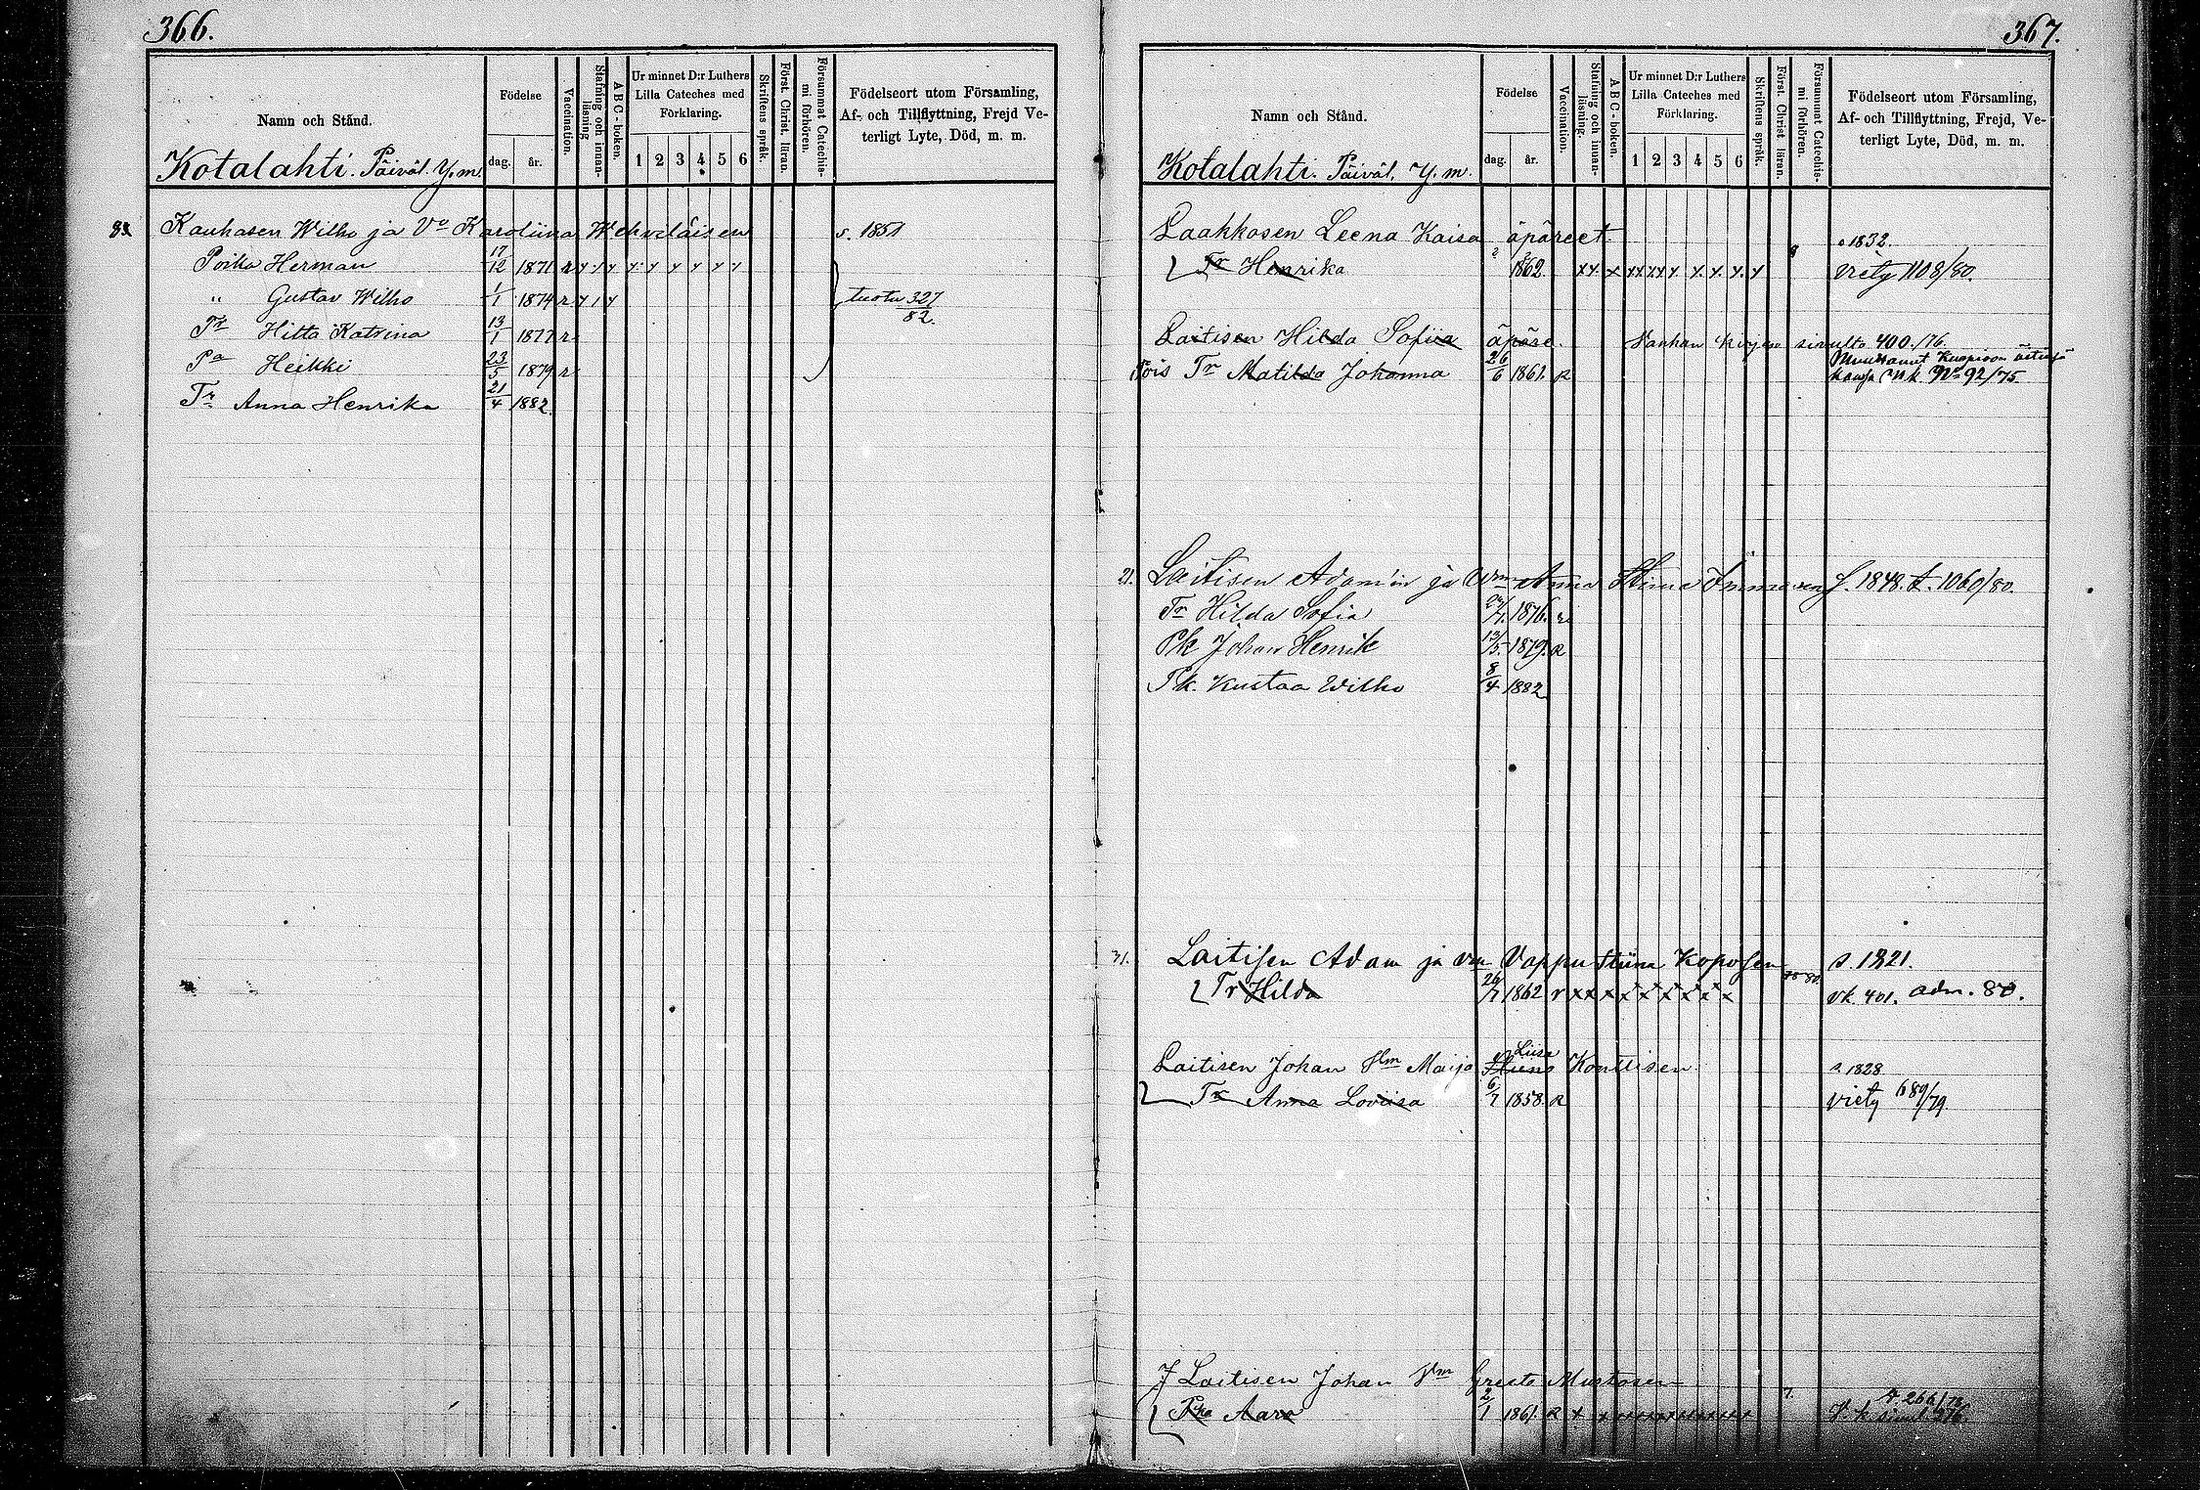 366.
Namn och Stånd.
Födelse
dag.
år.
Vaccination.
Stafning och innan-läsning
ABC-boken.
Ur minnet D:r Luthers
Lilla Cateches med
Förklaring.
1 2 3 4 5 6
Skriftens språk.
Först. Christ. läran.
Försummat Catechis-mi förhören.
Födelseort utom Församling,
Af- och Tillflyttning, Frejd Ve-
terligt Lyte, Död, m. m.
Kotalahti. Päiväl. Y. m.
83. Kauhasen Wilho ja Vo Karoliina Wehviläisen s. 1851
Poika Herman 17/12 1871 r
" Gustav Wilho 1/1 1874 r tuotu 327/82.
Tr Hitta Katrina 13/1 1877 r
Pa Heikki 23/5 1879 r
Tr Anna Henrika 21/4 1882
367.
Namn och Stånd.
Födelse
dag.
år.
Vaccination.
Stafning och innan-läsning.
ABC-boken.
Ur minnet D:r Luthers
Lilla Cateches med
Förklaring.
1 2 3 4 5 6
Skriftens språk.
Först. Christ läran.
Försummat Catechis-mi förhören.
Födelseort utom Församling,
Af- och Tillflyttning, Frejd, Ve-
terligt Lyte, Död, m. m.
Kotalahti. Päiväl. Y. m.
Laakkosen Leena Kaisa äpäreet s 1832.
Tr Henrika 1862. x x x x x x x x x x x viety 1108/80.
Laitisen Hilda Sofiia äpäre. Vanhan kirjan sivulta 400./76.
pois Tr Matilda Johanna 26/6 1861. R Muuttanut Kuopioon äitinsä
kanssa No 92/75.
21. Laitisen Adam'in ja Vmn Anna Stiina f. 1848. t. 1060/80.
Tr Hilda Sofia 1876. r
Pk Johan Henrik 13/5 1879. R
Pk. Kustaa Wilho 8/4 1882
31. Laitisen Adam ja vm Vappu Stiina Koposen s. 1821.
Tr Hilda 26/7 1862 r x x x x x x x x x vk. 401. adm. 80.
Liisa
Laitisen Johan Vm Maija Stiina Konttisen s 1828
Tr Anna Loviisa 6/7 1858. R viety 689/79.
Laitisen Johan Vm Greeta Mustosen
Pka Aaro 2/1 1861. R x x x x x x x x x 7. t. 266/78
V. k. sivul. 376